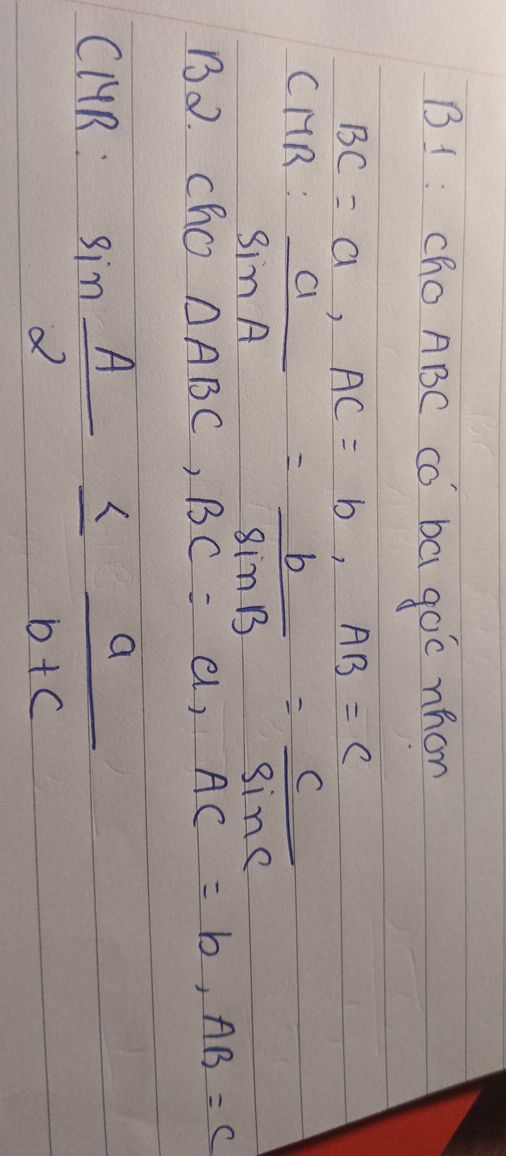 B1: cho ABC có ba góc nhọn
BC = a, AC = b, AB = c
CMR: a/sin A = b/sin B = c/sin C
B2. cho ΔABC, BC = a, AC = b, AB = c
CMR: sin A/2 ≤ a/b+c